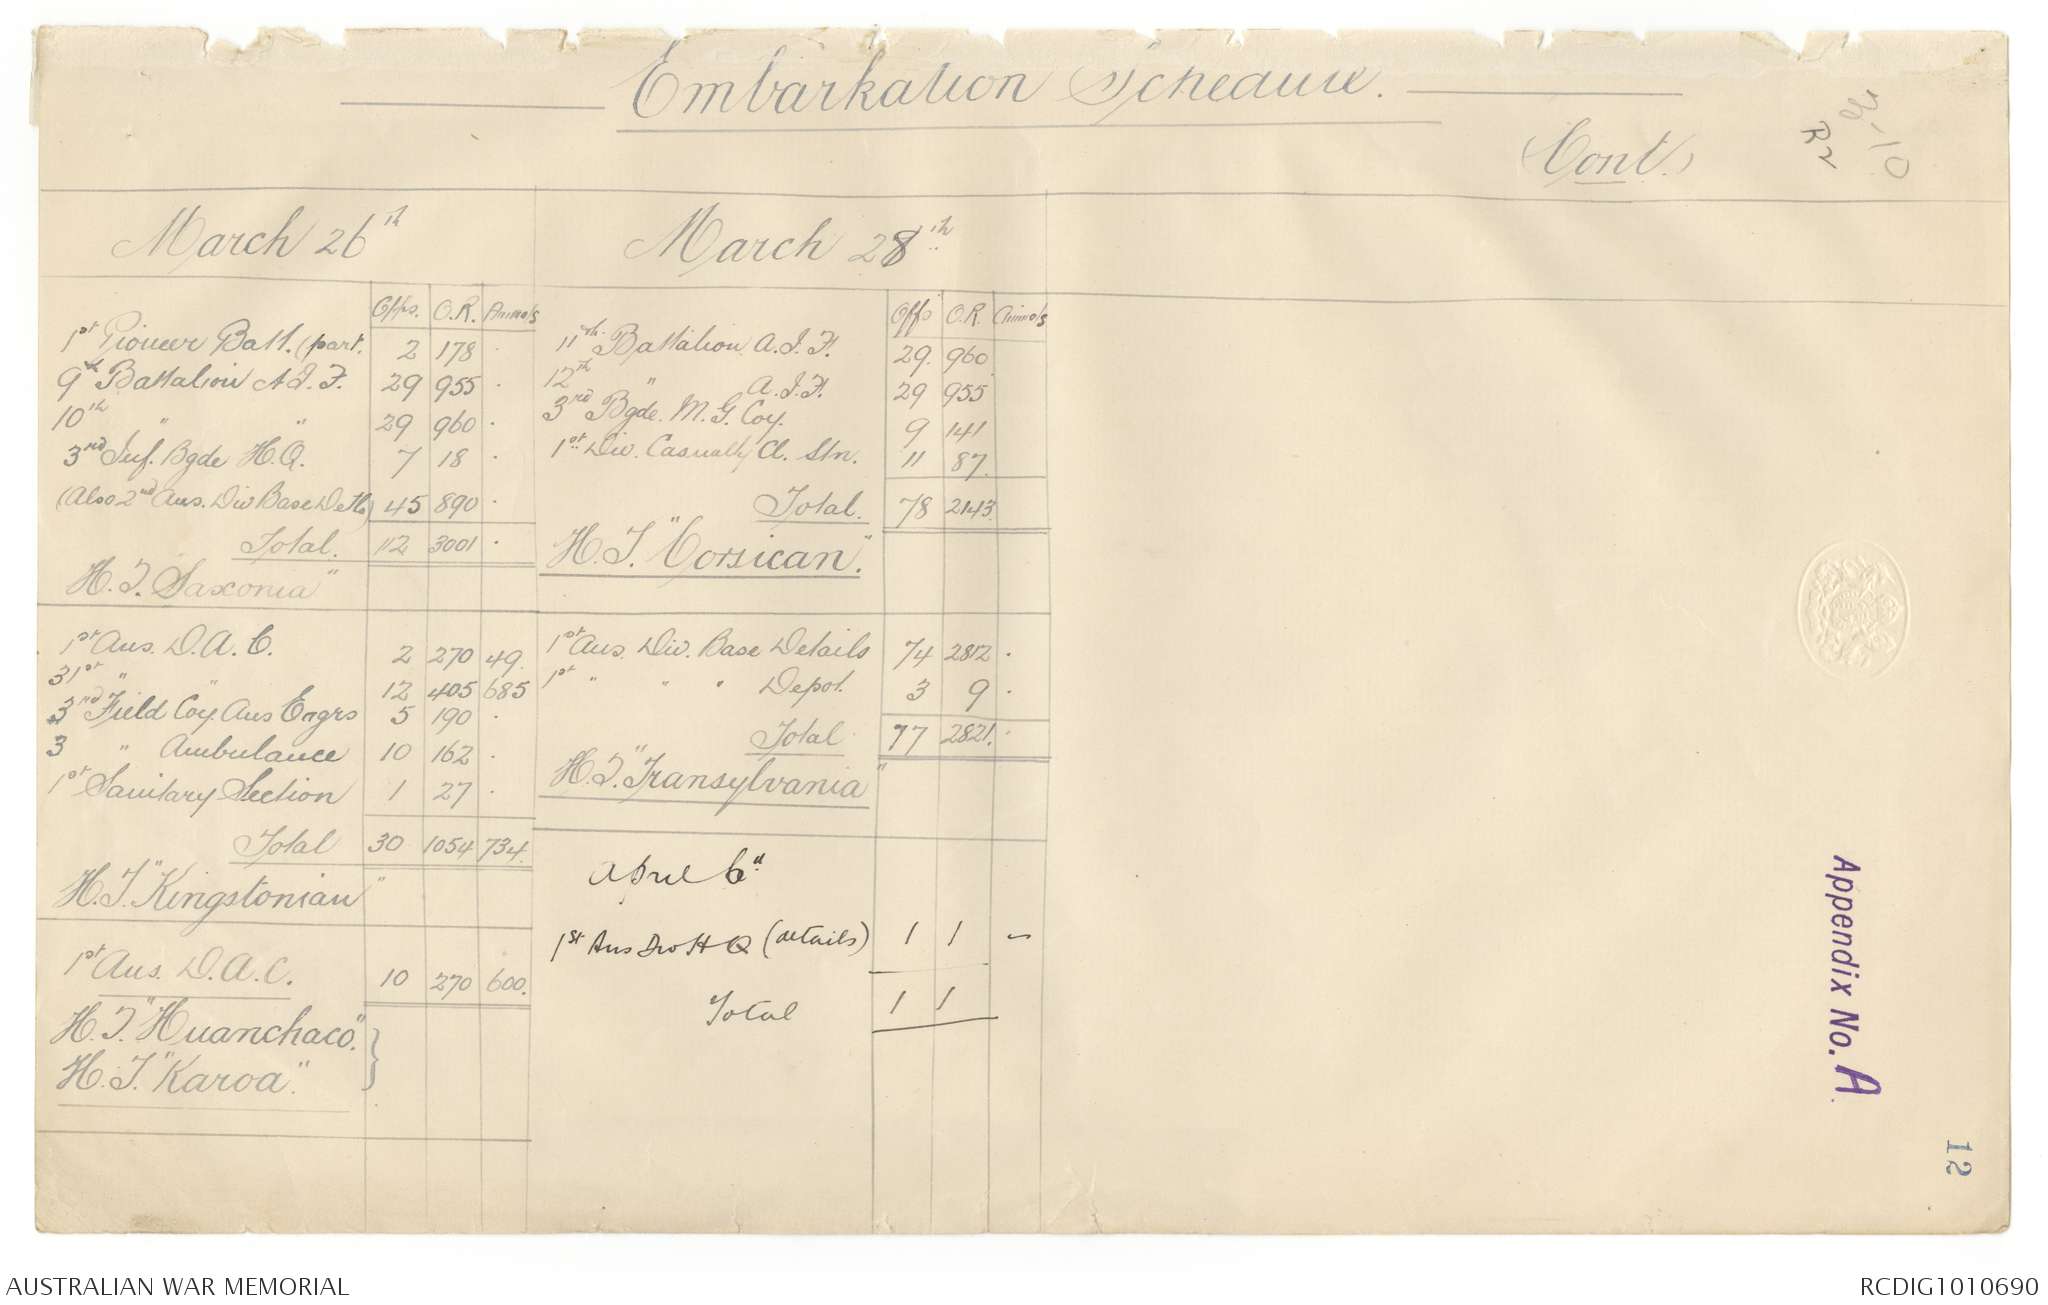 Embarkation Schedule.
(Cont.)
R2
March 26th
Offs. O.R. Animals
1st Pioneer Batt. (part. 2 178 .
9th Battalion A.I.F. 29 955 .
10th " " 29 960 .
3rd Inf. Bgde H.Q. 7 18 .
(Also 2nd Aus. Div Base Detls) 45 890 .
Total. 112 3001 .
H.T. Saxonia"
1st Aus. D.A.C. 2 270 49.
31st " " 12 405 685
3rd Field Coy Aus Engrs 5 190 .
3 " Ambulance 10 162 .
1st Sanitary Section 1 27 .
Total 30 1054 734.
H.T. "Kingstonian"
1st Aus. D.A.C. 10 270 600.
H.T. "Huanchaco".
H.T. "Karoa".
March 28th
Offs O.R. Animals
11th Battalion A.I.F. 29. 960
12th " A.I.F. 29 955
3rd Bgde. M.G. Coy. 9 141
1st Div. Casualty Cl. Stn. 11 87.
Total. 78 2143.
H.T. "Corsican".
1st Aus. Div. Base Details 74 2812 .
1st " " " Depot. 3 9 .
Total 77 2821. .
H.T. "Transylvania"
April 6"
1st Aus Div H Q (details) 1 1 -
Total 1 1
Appendix No. A
12
AUSTRALIAN WAR MEMORIAL
RCDIG1010690